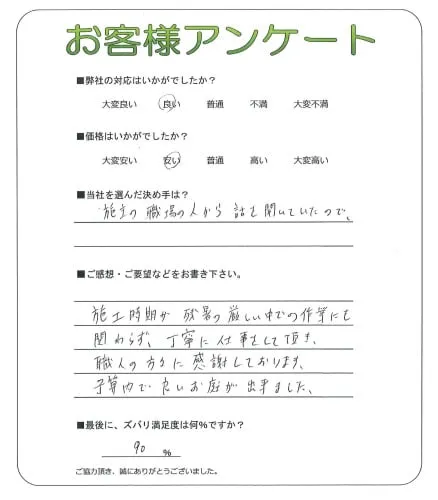 お客様アンケート
■弊社の対応はいかがでしたか?
大変良い 良い 普通 不満 大変不満
■価格はいかがでしたか?
大変安い 安い 普通 高い 大変高い
■当社を選んだ決め手は?
施主の職場の人から話を聞いていたので、
■ご感想・ご要望などをお書き下さい。
施工時期が残暑の厳しい中での作業にも
関わらず、丁寧に仕事をして頂き、
職人の方々に感謝しております。
予算内で良いお庭が出来ました。
■最後に、ズバリ満足度は何%ですか?
90 %
ご協力頂き、誠にありがとうございました。